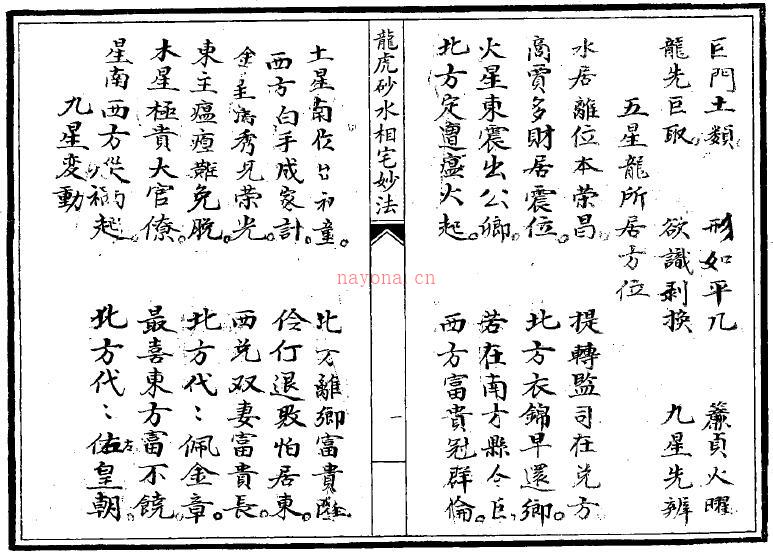 巨門土類 形如平几 簾貞火曜
龍先巨取 欲識剥換 九星先辨
五星龍所居方位
水居離位本荣昌。提轉監司在兌方
商賈多財居震位。北方衣錦早還鄉。
火星東震出公卿。若在南方縣令
北方定遭瘟火起。西方富貴冠群倫。
龍虎砂水相宅妙法
一
土星南位 童。北方離鄉富貴
西方白手成家計。伶仃退敗怕居東。
金星高秀見荣光。西兌双妻富貴長。
東主瘟 難免脫。北方代〻佩金章。
木星極貴大官僚。最喜東方富不饒。
星南西方災禍起。北方代〻佑皇朝。
九星変動
nayona.cn